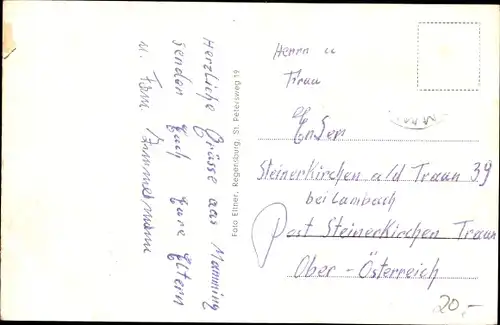 Herzliche Grüsse aus Mamming
senden Euch Eure Eltern
u. Fam. Zimmermann
Foto Ettner, Regensburg, St. Petersweg 19
Herrn u
Frau
Steinerkirchen a/d Traun 39
bei Lambach
Post Steinerkirchen Traun
Ober-Österreich
20,-